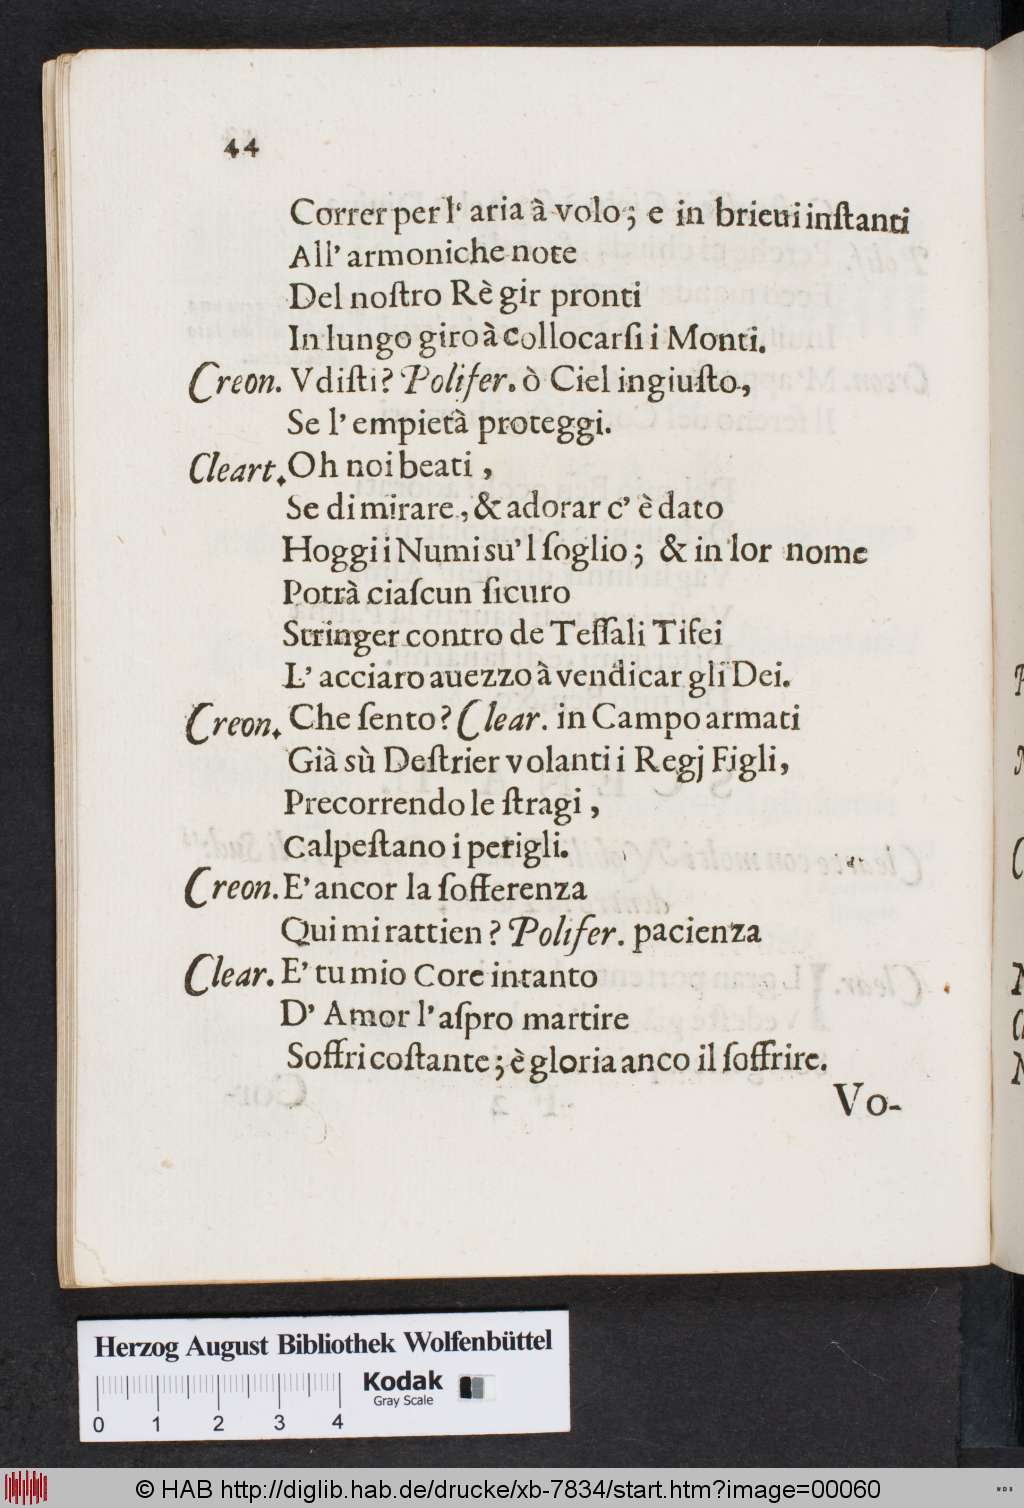 44
Correr per l' aria à volo; e in brieui inſtanti
All' armoniche note
Del noſtro Rè gir pronti
In lungo giro à collocarſi i Monti.
Creon. Vdiſti? Polifer. ò Ciel ingiuſto,
Se l' empietà proteggi.
Cleart. Oh noi beati,
Se di mirare, & adorar c' è dato
Hoggi i Numi su'l ſoglio; & in lor nome
Potrà ciaſcun ſicuro
Stringer contro de Teſſali Tifei
L' acciaro auezzo à vendicar gli Dei.
Creon. Che ſento? Clear. in Campo armati
Già sù Deſtrier volanti i Regj Figli,
Precorrendo le ſtragi,
Calpeſtano i perigli.
Creon. E' ancor la ſofferenza
Qui mi rattien? Polifer. pacienza
Clear. E' tu mio Core intanto
D' Amor l' aſpro martire
Soffri coſtante; è gloria anco il ſoffrire.
Vo-
Herzog August Bibliothek Wolfenbüttel
Kodak
Gray Scale
0 1 2 3 4
© HAB http://diglib.hab.de/drucke/xb-7834/start.htm?image=00060